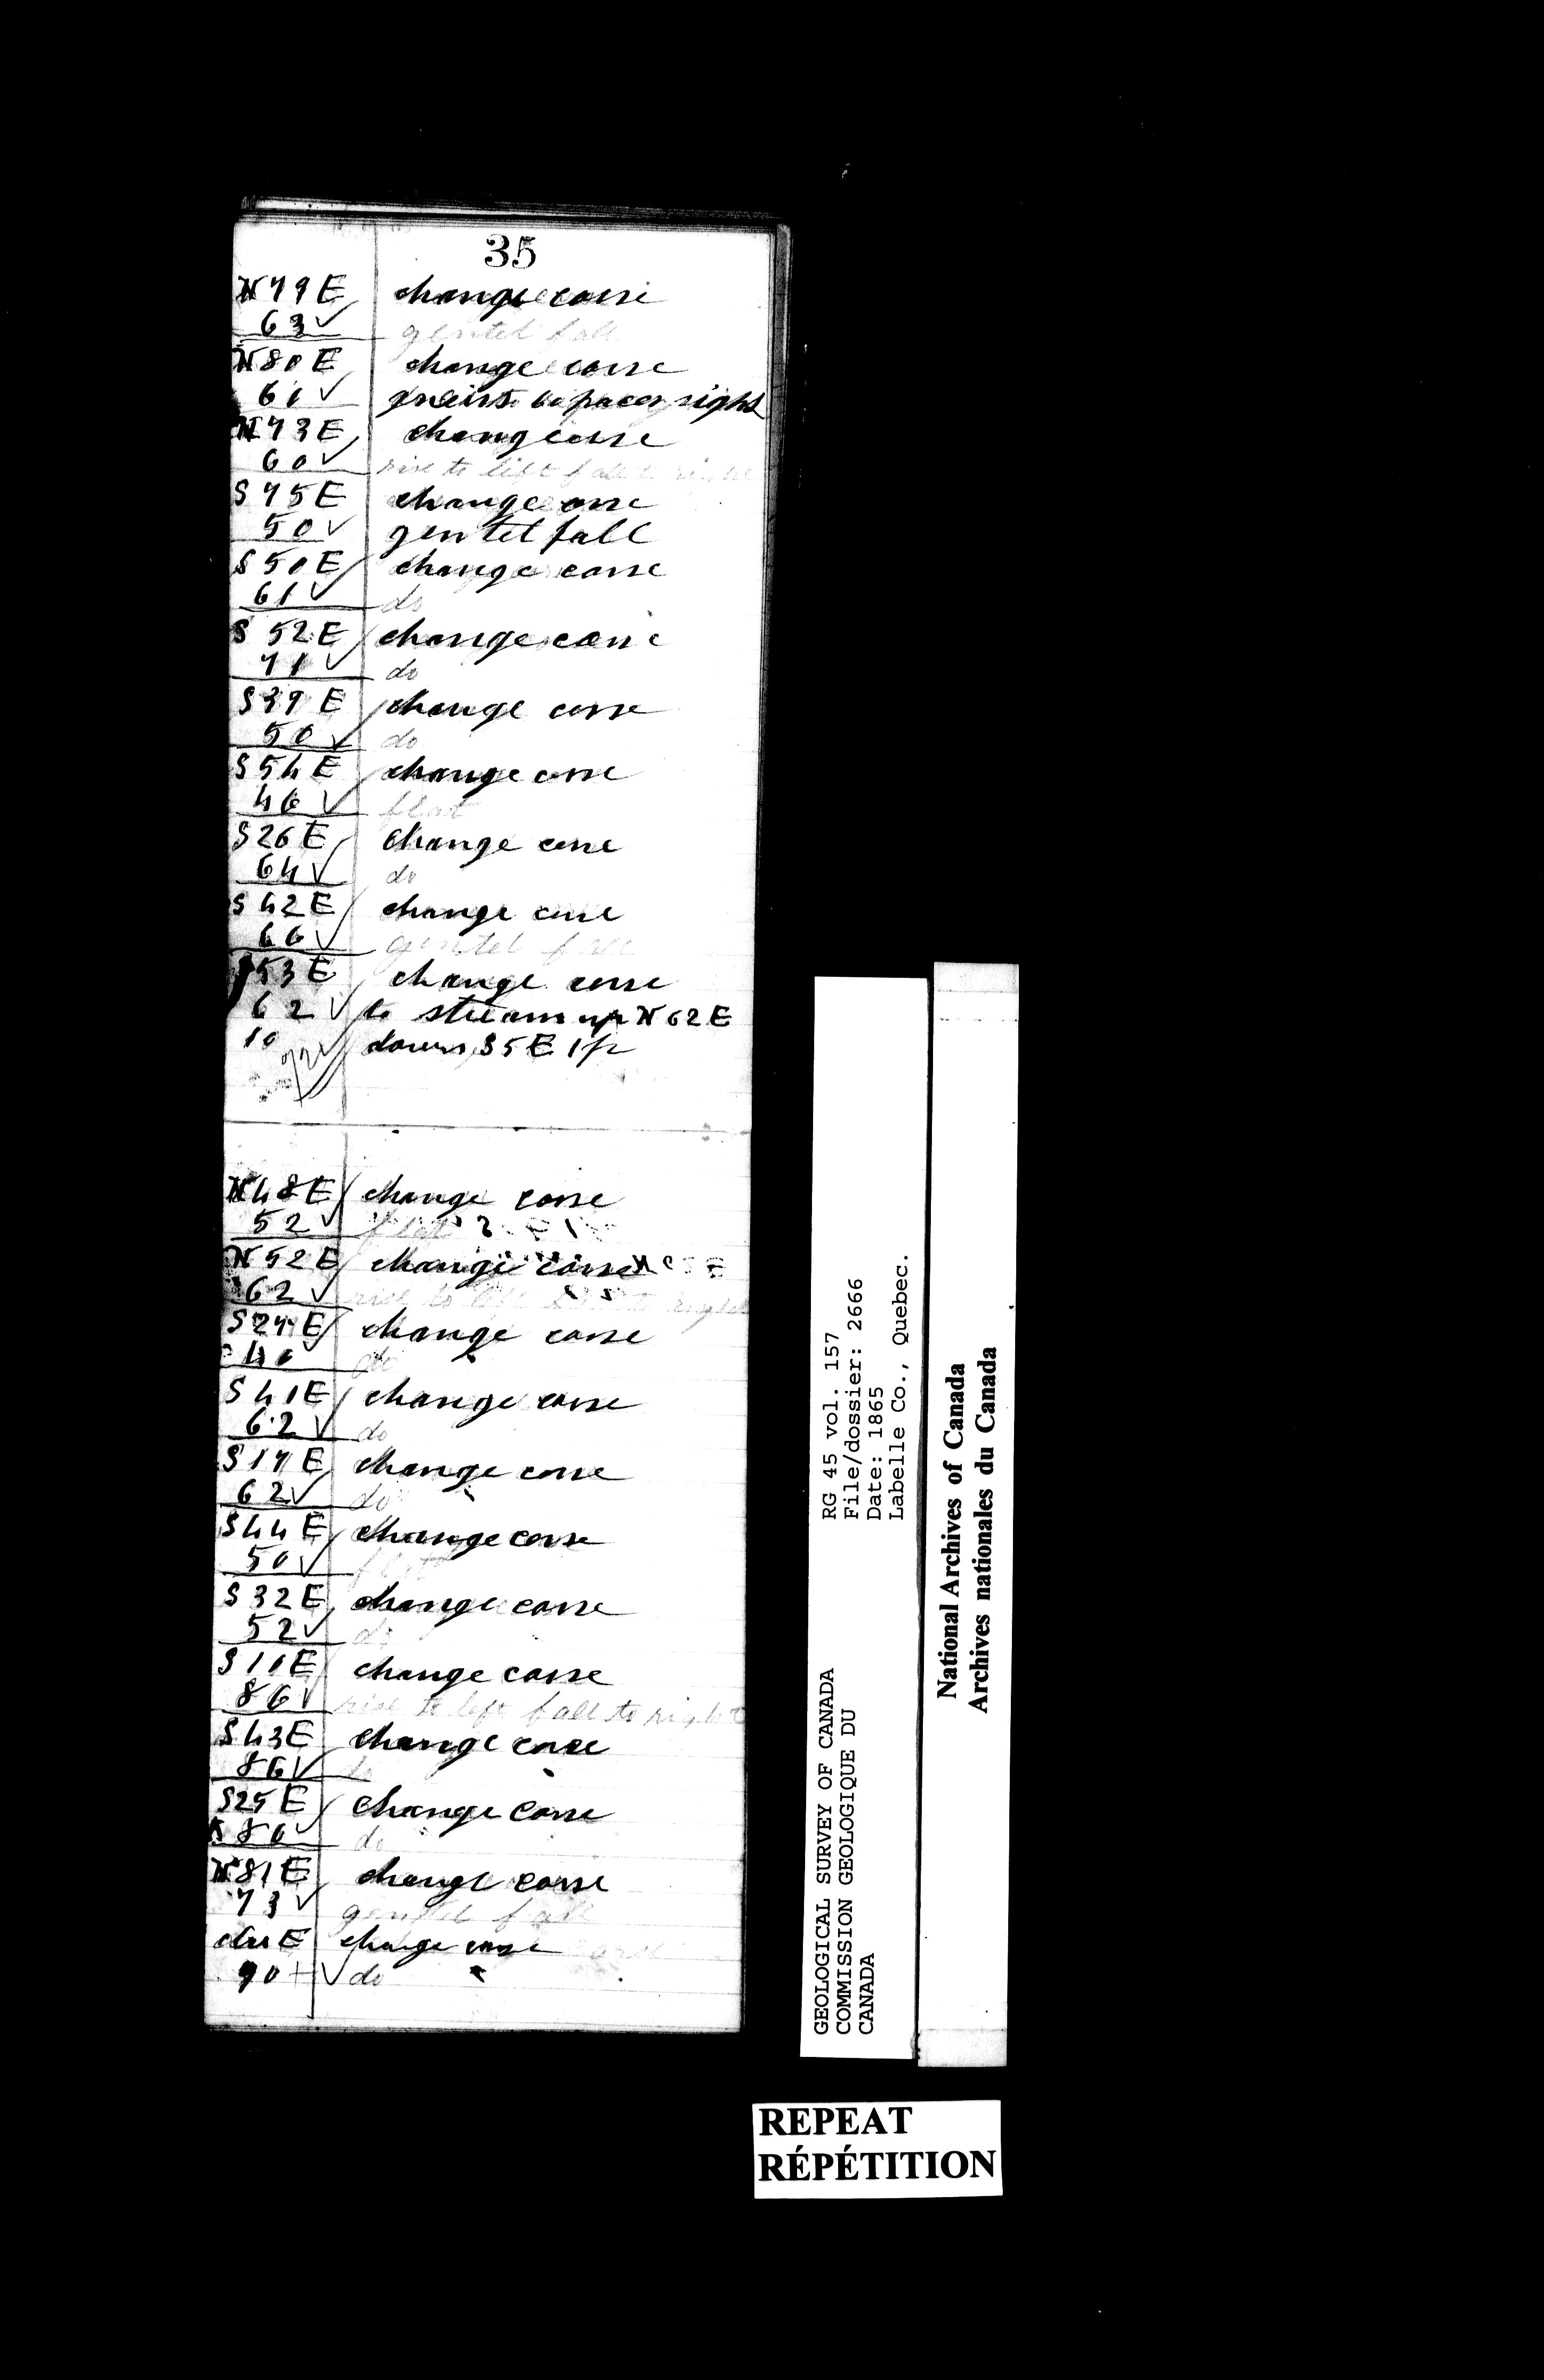 35
N79E change corse
63 ✓ gentel fall
N80E change corse
61 ✓ gneiss 60 paces right
N73E change corse
60 ✓ rise to left fall to right
S75E change corse
50 ✓ gentel fall
S50E change corse
61 ✓ do
S52E change corse
71 ✓ do
S39E change corse
50 ✓ do
S54E change corse
46 ✓ flat
S26E change corse
64 ✓ do
S42E change corse
66 ✓ gentel fall
S53E change corse
62 ✓ to stream up N62E
10 down S5E 1p
72 ✓
N48E change corse
52 ✓ flat
N52E change corse
62 ✓ rise to left fall to right
S27E change corse
40 do
S41E change corse
62 ✓ do
S17E change corse
62 ✓ do
S44E change corse
50 ✓ flat
S32E change corse
52 ✓ do
S10E change corse
86 ✓ rise to left fall to right
S43E change corse
86 ✓ do
S25E change corse
80 ✓ do
N81E change corse
73 ✓ gentel fall
du E change corse
90 + ✓ do
GEOLOGICAL SURVEY OF CANADA
COMMISSION GEOLOGIQUE DU
CANADA
RG 45 vol. 157
File/dossier: 2666
Date: 1865
Labelle Co., Quebec.
National Archives of Canada
Archives nationales du Canada
REPEAT
RÉPÉTITION